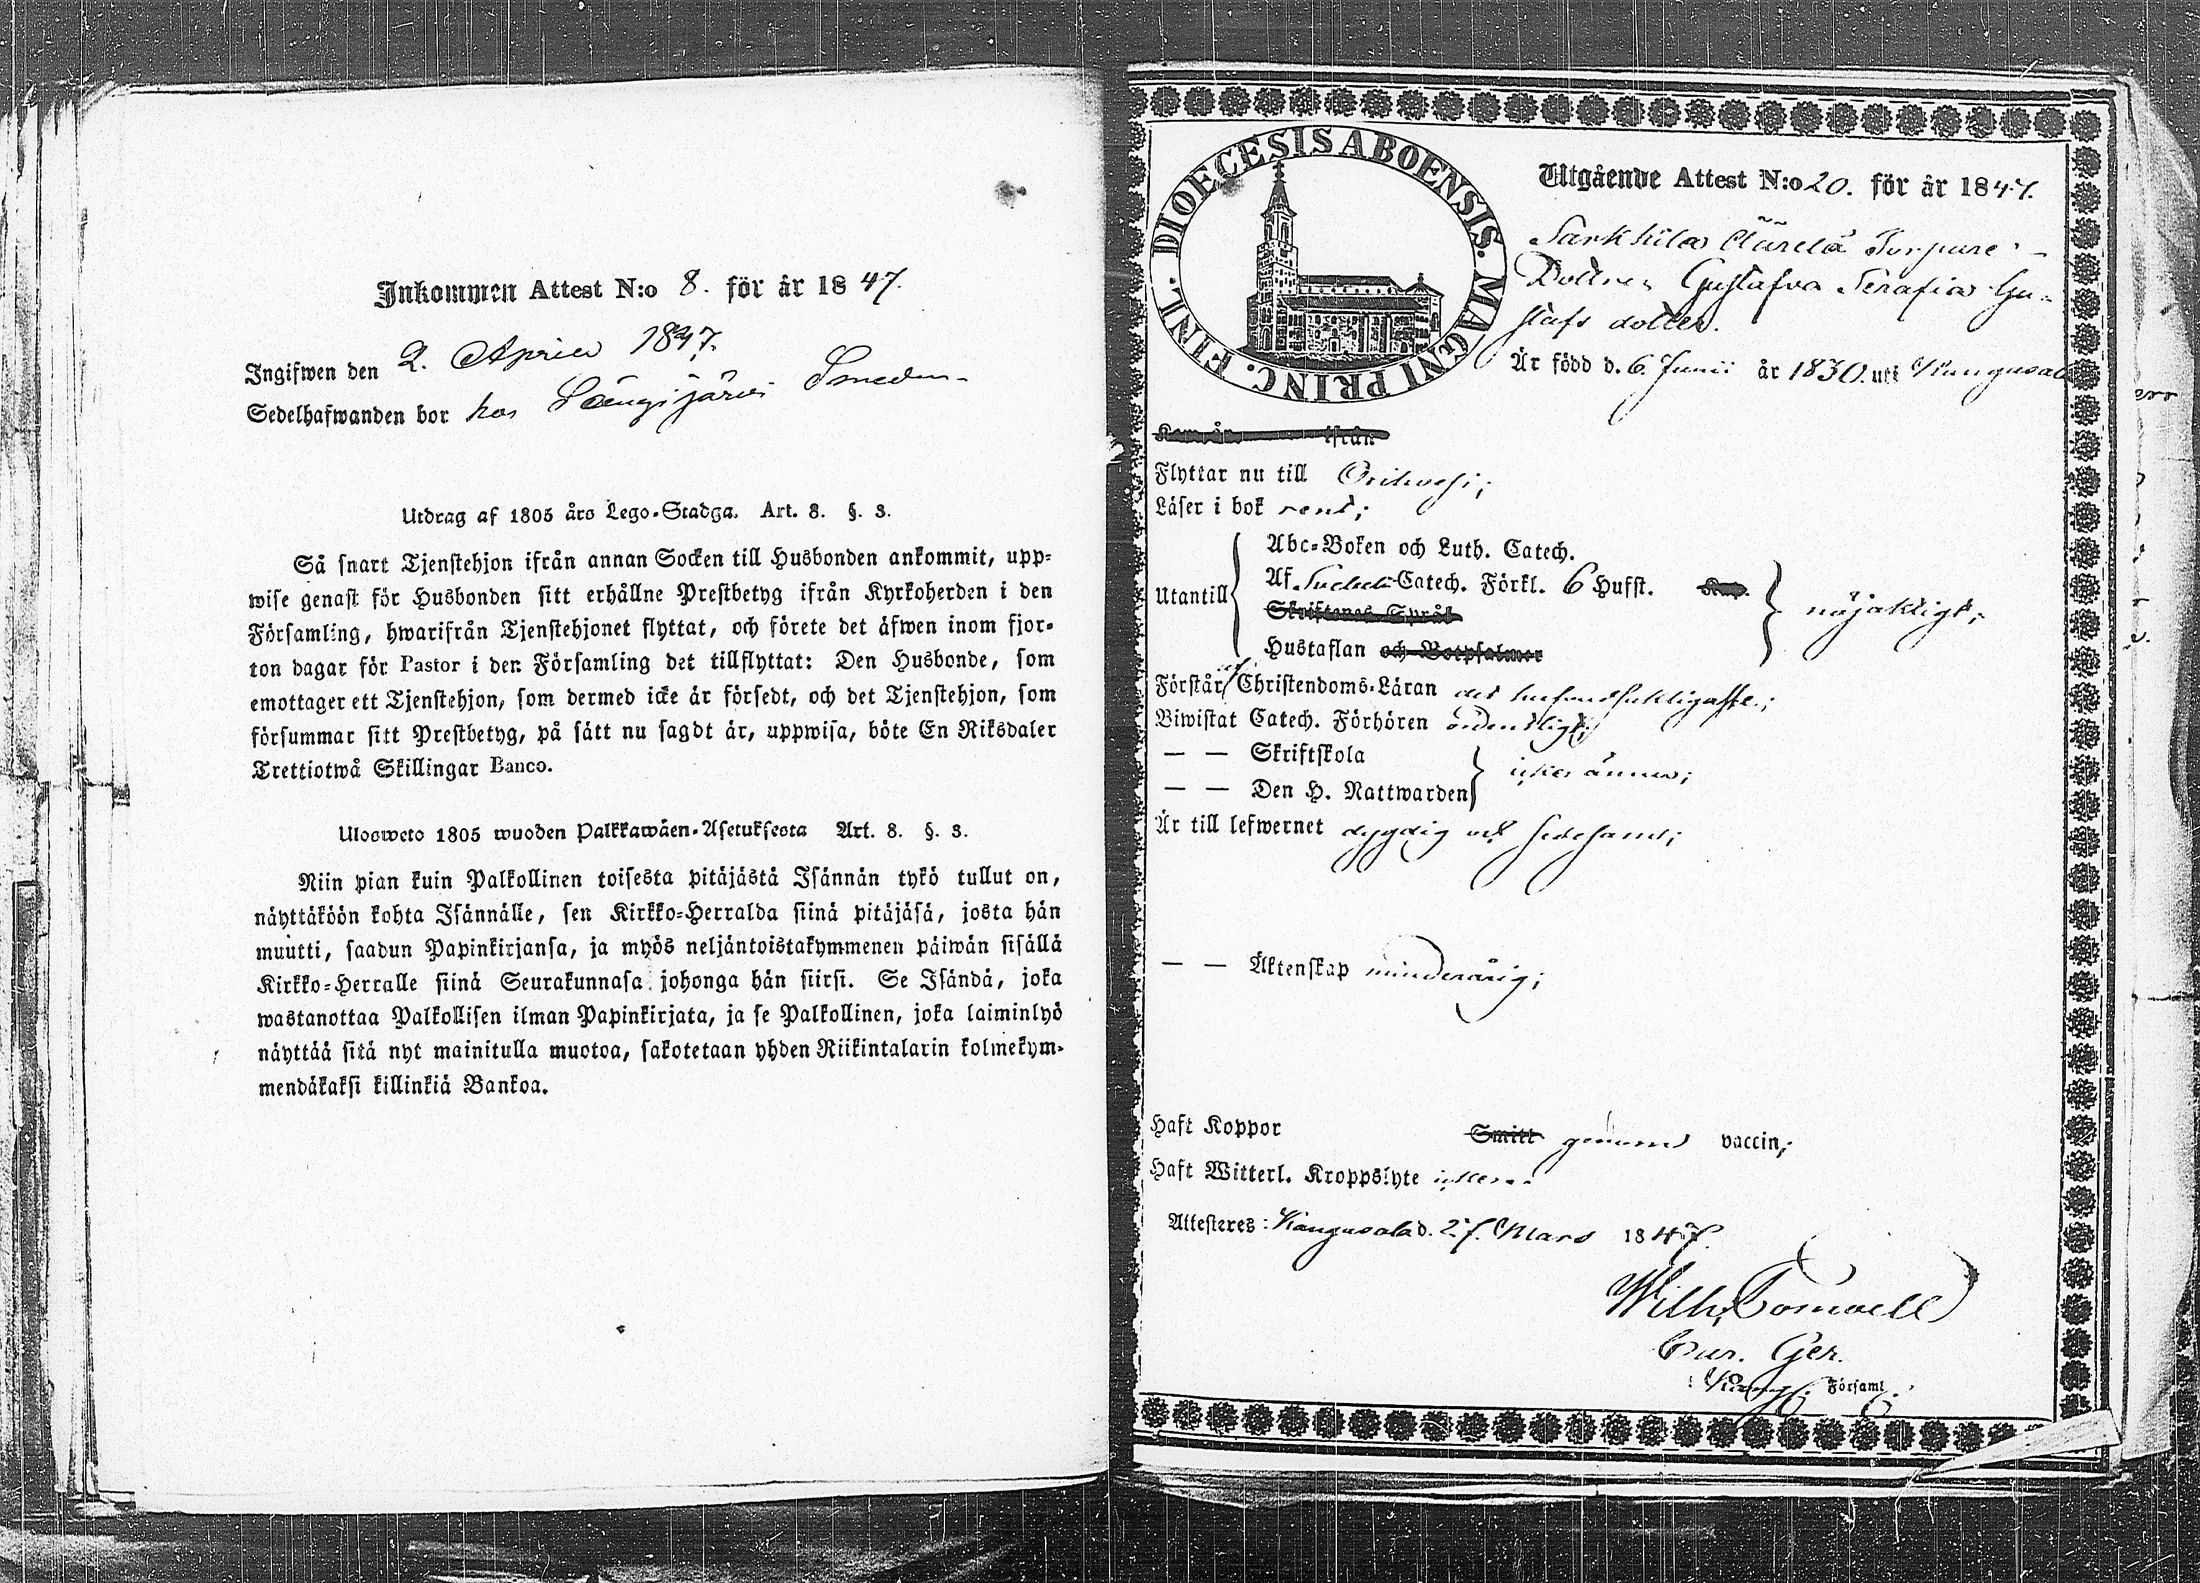 Inkommen Attest N:o 8. för år 1847.
Ingifwen den 2. April 1847.
Sedelhafwanden bor hos Längijärvi Smeden
Utdrag af 1805 års Lego-Stadga. Art. 8. §. 3.
Så snart Tjenstehjon ifrån annan Socken till Husbonden ankommit, upp-
wise genast för Husbonden sitt erhållne Prestbetyg ifrån Kyrkoherden i den
Församling, hwarifrån Tjenstehjonet flyttat, och förete det äfwen inom fjor-
ton dagar för Pastor i den Församling det tillflyttat: Den Husbonde, som
emottager ett Tjenstehjon, som dermed icke är försedt, och det Tjenstehjon, som
försummar sitt Prestbetyg, på sätt nu sagdt är, uppwisa, böte En Riksdaler
Trettiotwå Skillingar Banco.
Ulosweto 1805 wuoden Palkkawäen-Asetuksesta Art. 8. §. 3.
Niin pian kuin Palkollinen toisesta pitäjästä Isännän tykö tullut on,
näyttäköön kohta Isännälle, sen Kirkko-Herralda siinä pitäjäsä, josta hän
muutti, saadun Papinkirjansa, ja myös neljäntoistakymmenen päiwän sisällä
Kirkko-Herralle siinä Seurakunnasa johonga hän siirsi. Se Isändä, joka
wastanottaa Palkollisen ilman Papinkirjata, ja se Palkollinen, joka laiminlyö
näyttää sitä nyt mainitulla muotoa, sakotetaan yhden Riikintalarin kolmekym-
mendäkaksi killinkiä Bankoa.
DIOECESIS ABOENSIS. MAGNI PRINC. FINL.
Utgående Attest N:o 20. för år 1847.
Sarkhila Torpare
Dottren Gustafva Serafia Gu-
stafs dotter.
Är född d. 6 Junii år 1830. uti Kangasala
Kom år ifrån
Flyttar nu till Orihvesi;
Läser i bok rent;
Abc-Boken och Luth. Catech.
Utantill Af Catech. Förkl. 6 Hufst. Kap. nöjaktigt;
Skriftenes Språk
Hustaflan och Botpsalmer
Förstår af Christendoms-Läran det hufvudsakligaste;
Biwistat Catech. Förhören ordentligt;
— — Skriftskola
— — Den H. Nattwarden icke ännu;
Är till lefwernet dygdig och sedesam;
— — Äktenskap minderårig;
Haft Koppor Smitt genom vaccin;
Haft Witterl. Kroppslyte
Attesteres: Kangasala d. 27. Mars 1847.
Wilh.
Cur. Ger.
i Kang. Församl.